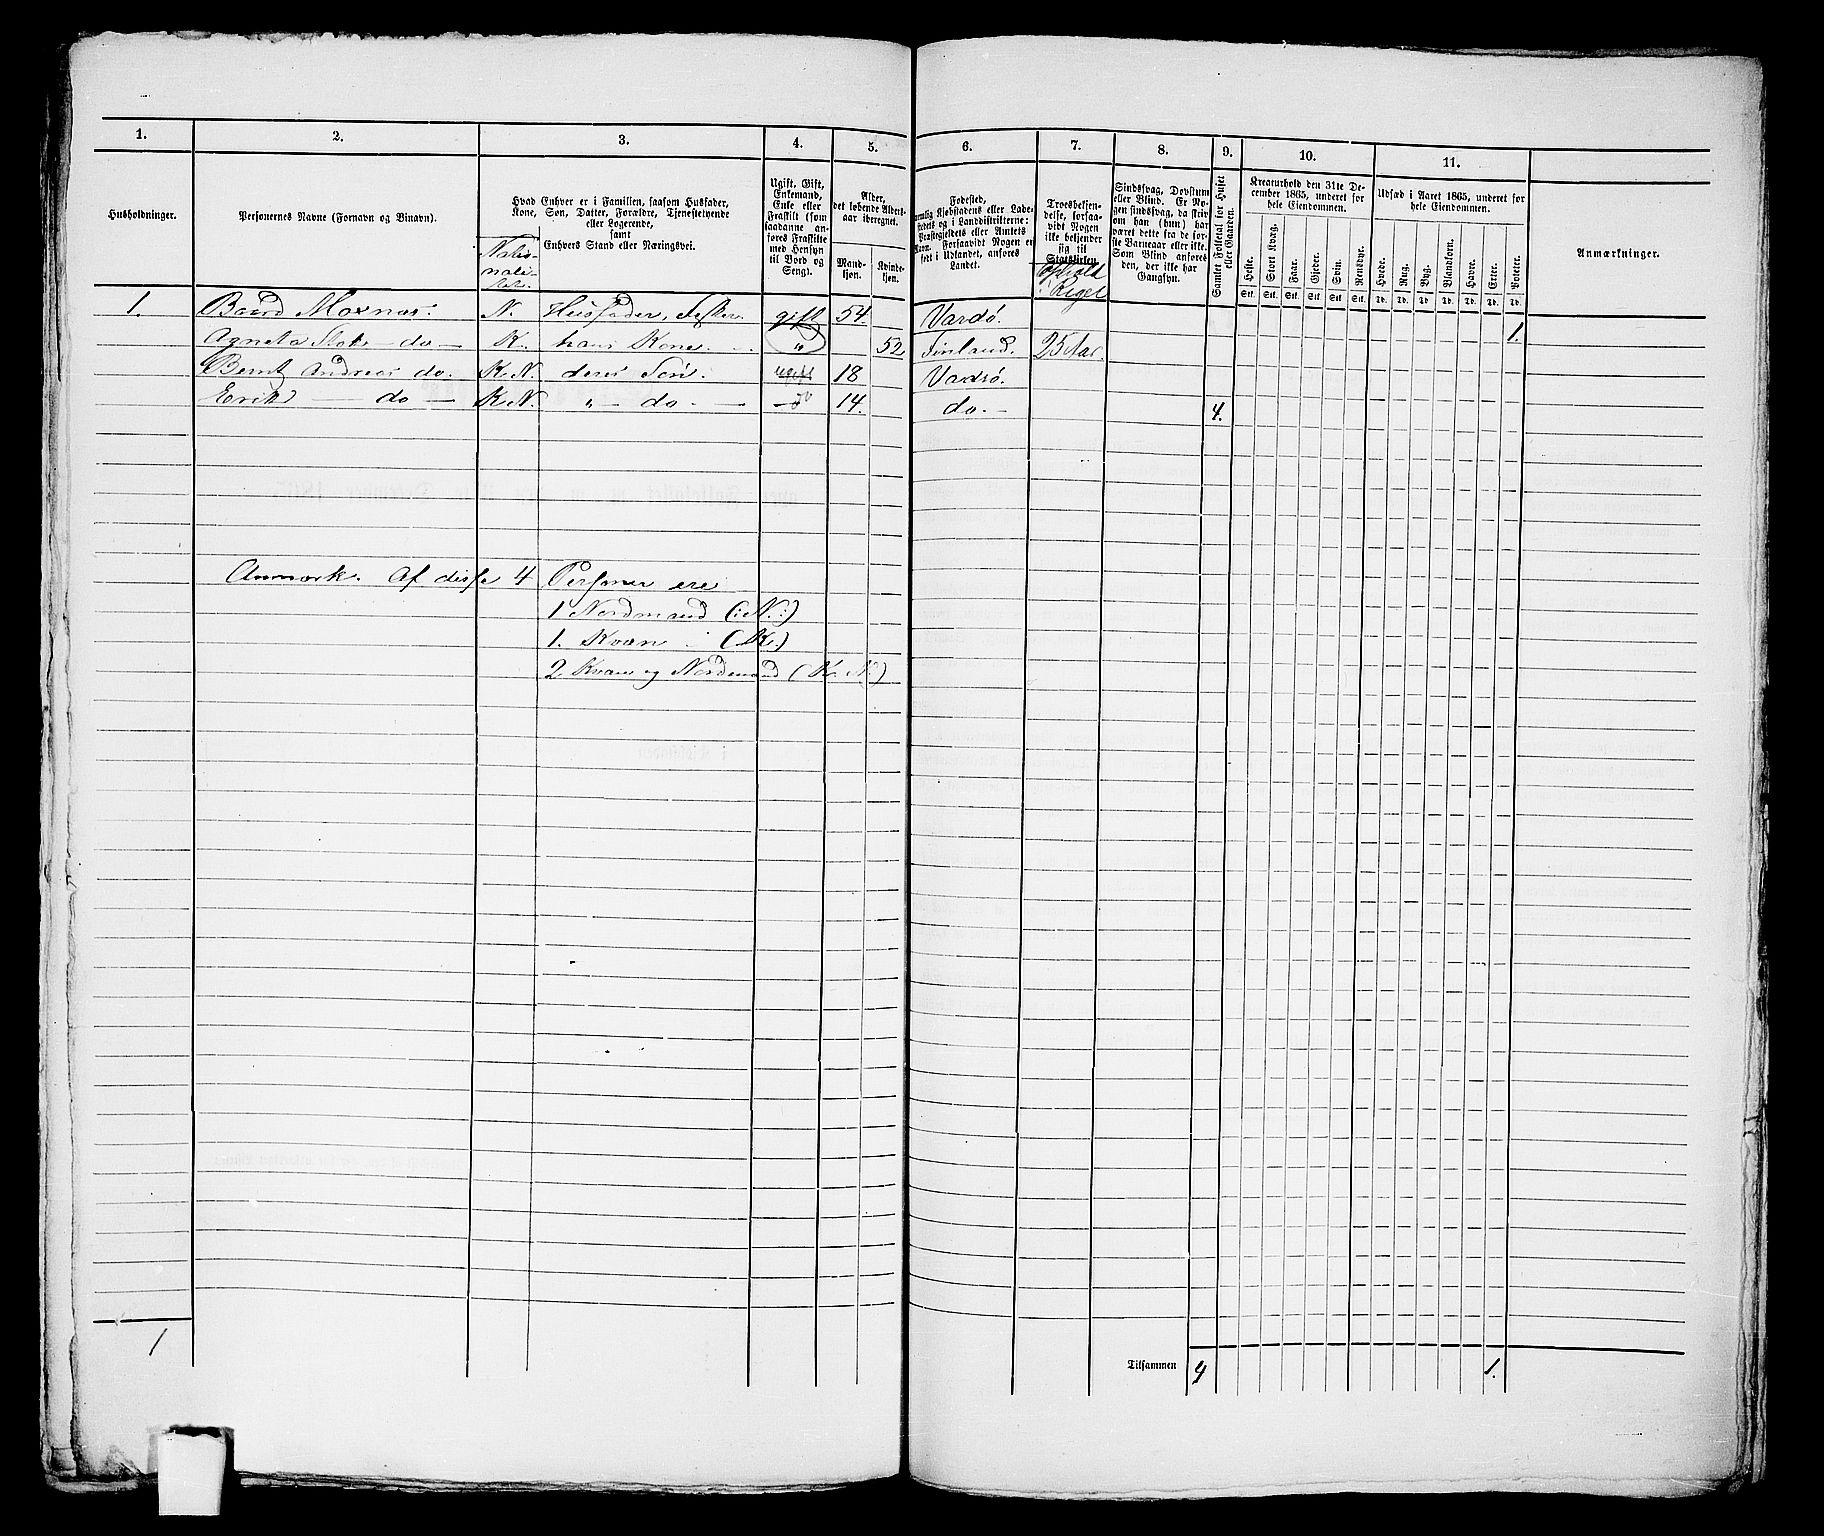 1. 2. 3. 4. 5. 6. 7. 8. 9. 10. 11.
Husholdninger.
Personernes Navne (Fornavn og Binavn).
Hvad Enhver er i Familien, saasom Husfader,
Kone, Søn, Datter, Forældre, Tjenestetyende
eller Logerende,
samt
Enhvers Stand eller Næringsvei.
Natio-
nali-
tet.
Ugift, Gift,
Enkemand,
Enke eller
Fraskilt (som
saadanne an-
føres Fraskilte
med Hensyn
til Bord og
Seng).
Alder,
det løbende Alders-
aar iberegnet.
Mand-
kjøn.
Kvinde-
kjøn.
Fødested,
nemlig Kjøbstadens eller Lade-
stedets og i Landdistrikterne:
Præstegjeldets eller Amtets
Navn. Forsaavidt Nogen er
født i Udlandet, anføres
Landet.
Troesbekjen-
delse, forsaa-
vidt Nogen
ikke bekjender
sig til
Statskirken
Ophold
i Riget
Sindssvag, Døvstum
eller Blind. Er No-
gen sindssvag, da skriv
om han (hun) har
været dette fra de før-
ste Barneaar eller ikke.
Som Blind anføres
den, der ikke har
Gangsyn.
Samlet Folketal for Huset
eller Gaarden.
Kreaturhold den 31te De-
cember 1865, underet for
hele Eiendommen.
Heste. Stort Kvæg. Faar. Gjeder. Svin. Rensdyr.
Stk. Stk. Stk. Stk. Stk. Stk.
Udsæd i Aaret 1865, underet for
hele Eiendommen.
Hvede. Rug. Byg. Blandkorn. Havre. Erter. Poteter.
Td. Td. Td. Td. Td. Td. Td.
Anmærkninger.
1. Baard Moxnæs. N. Husfader, Fisker. gift 54. Vardø. 1.
Agneta – do – K. hans Kone. " 52 Finland. 25 Aar.
Bernt Andreas do. K. N. deres Søn. ugift 18 Vadsø.
Erik – do – K N. " – do. – do 14. do. – 4.
Anmærk. Af disse 4 Personer ere
1 Nordmand (: N :)
1. Kvæn (K.)
2 Kvæn og Nordmand (K. N.)
1
Tilsammen 4 1.